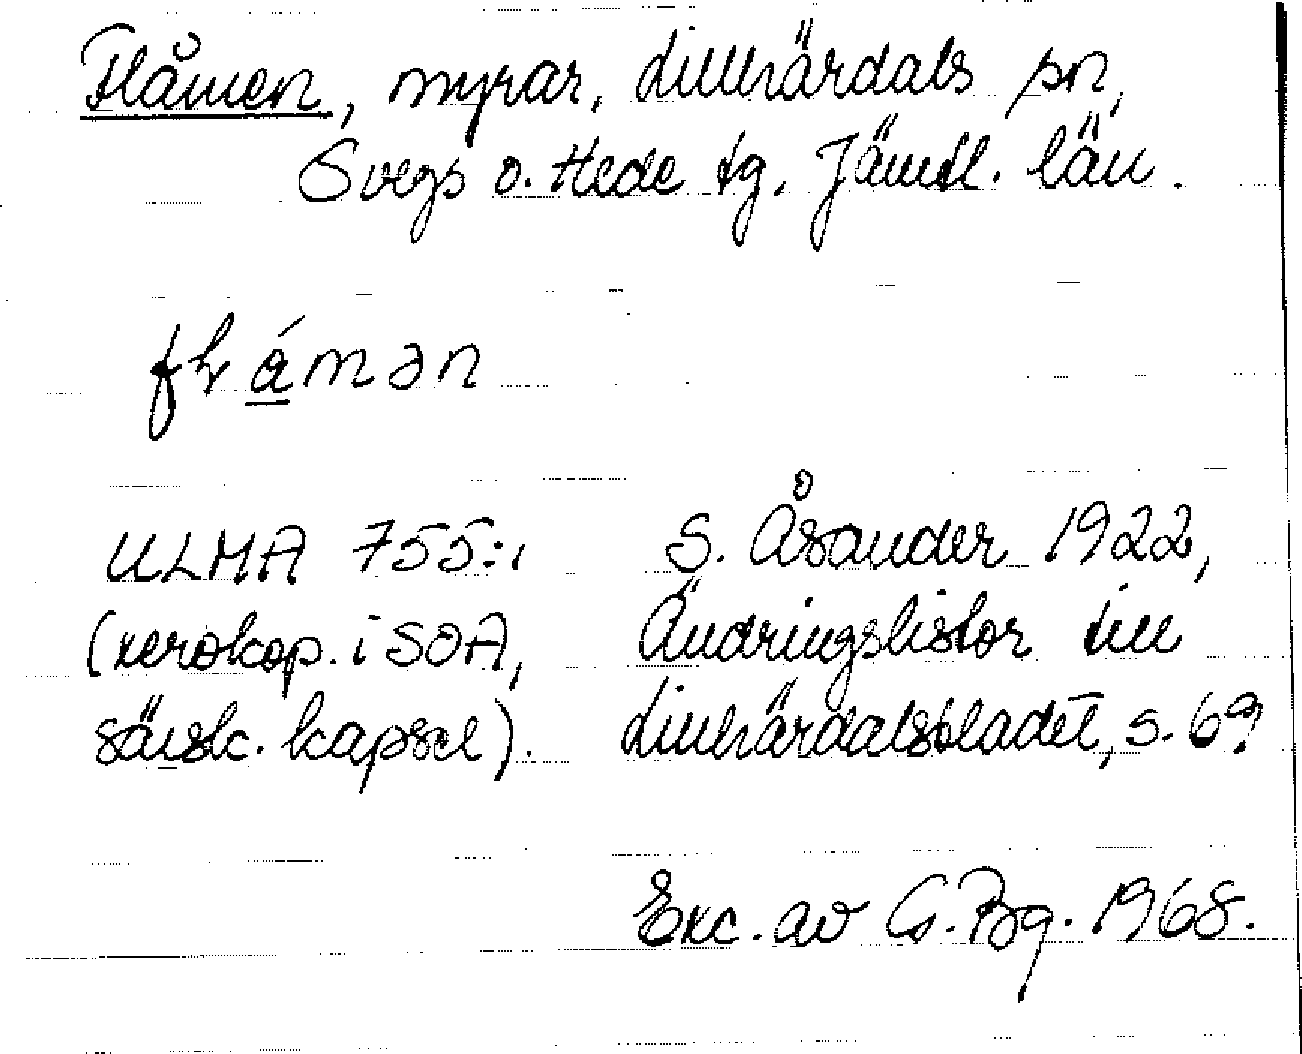 Flåmen, myrar, Lillhärdals sn,
Svegs o. Hede tg. Jämtl. län.
flåmən
ULMA 755:1
(xerokop. i SOA,
särsk. kapsel).
S. Åsander 1922,
Ändringslistor till
Lillhärdalsbladet, s. 69
Exc. av G. Bg. 1968.